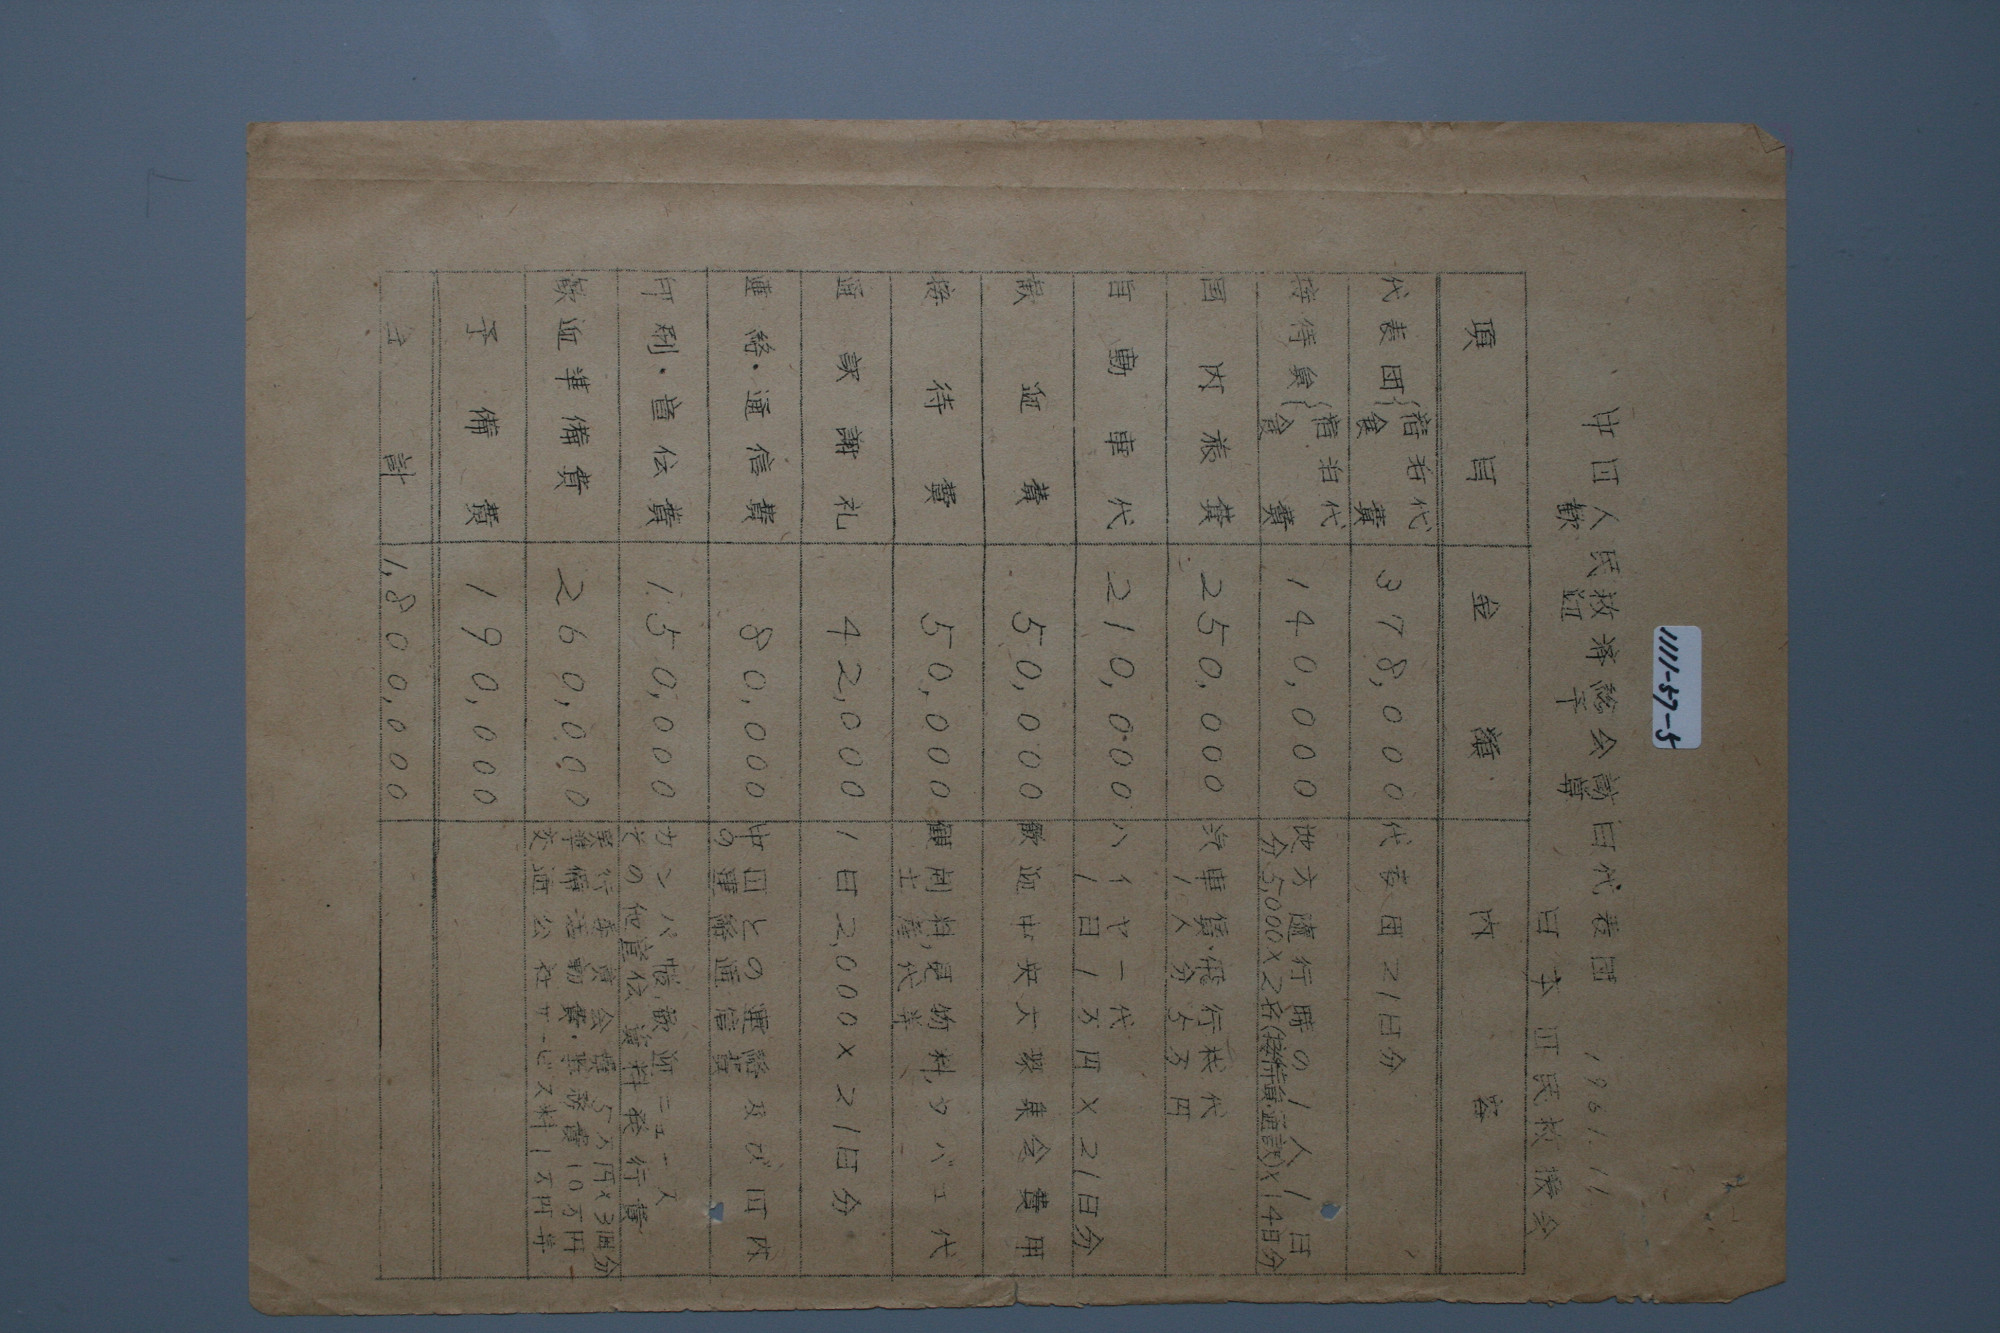 1111-57-5
中国人民救済総会訪日代表団 1961.11
歓迎予算
日本国民救援会
項目 金額 内容
代表団{宿泊代 食費 378,000 代表団21日分
接待員{宿泊代 食費 140,000 地方随行時の1人1日
分5,000×2名(接待員・通訳)×14日分
国内旅費 250,000 汽車賃・飛行機代
1人分5万円
自動車代 210,000 ハイヤー代
1日1万円×21日分
歓迎費 50,000 歓迎中央大衆集会費用
接待費 50,000 観劇料,見物料,タバコ代
土産代等
通訳謝礼 42,000 1日2,000×21日分
連絡・通信費 80,000 中国との連絡及び国内
の連絡通信費
印刷・宣伝費 150,000 カンパ帖,歓迎ニュース
その他宣伝資料発行費
歓迎準備費 260,000 実行委員会費5万円×3週分
準備活動費・事務費10万円
交通公社サービス料1万円等
予備費 190,000
合計 1,800,000